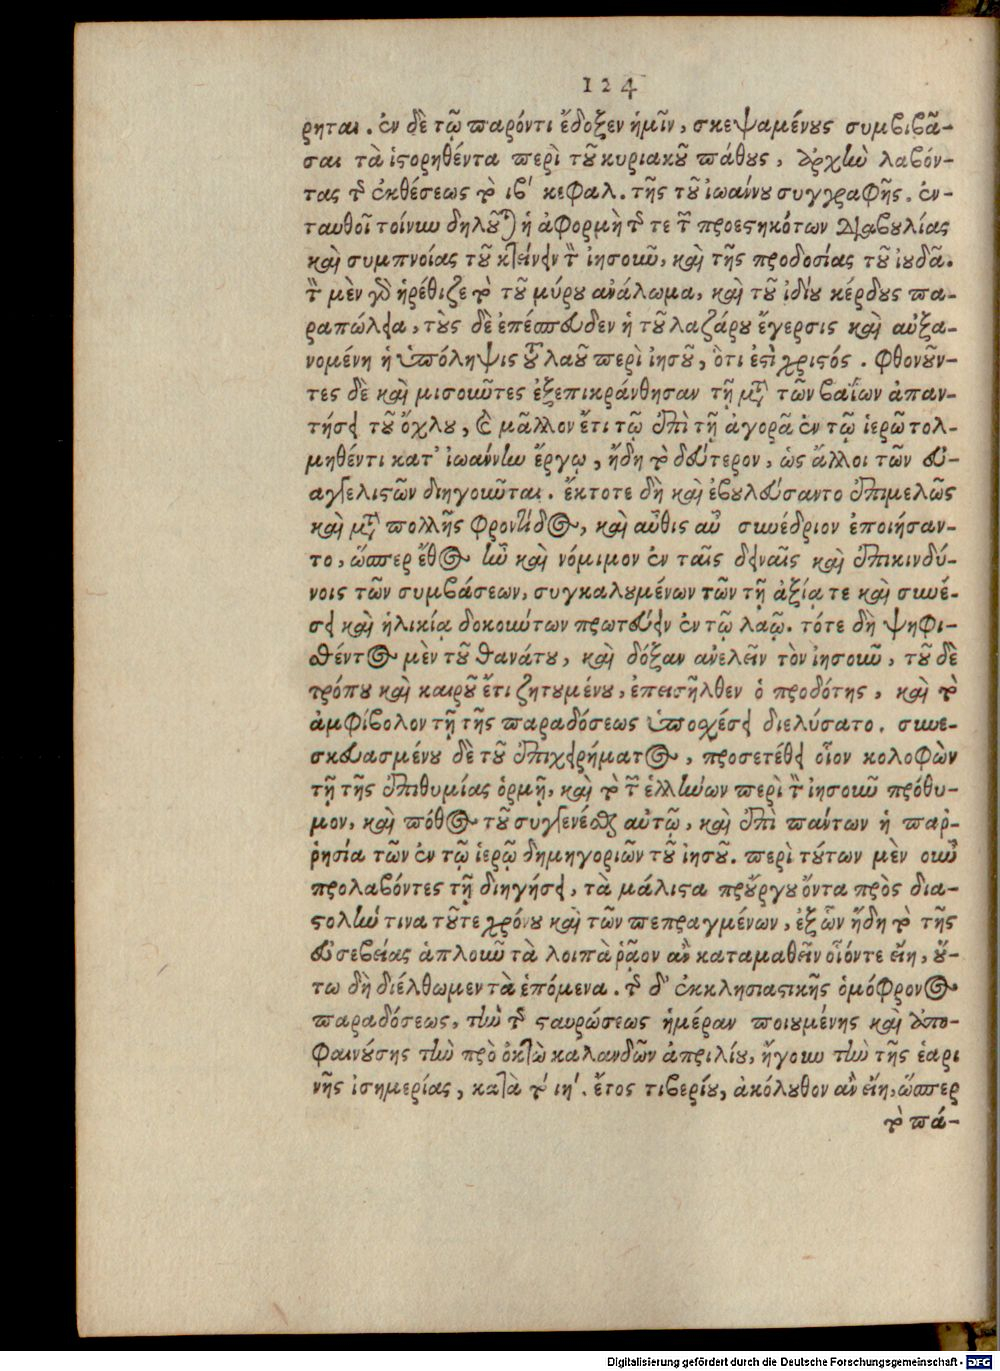 124
ρηται. ἐν δὲ τῷ παρόντι ἔδοξεν ἡμῖν, σκεψαμένους συμβιβᾶ-
σαι τὰ ἱστορηθέντα περὶ τοῦ κυριακοῦ πάθους, ἀρχὴν λαβόν-
τας τῆς ἐκθέσεως τὸ ιβʹ κεφάλ. τῆς τοῦ ἰωάννου συγγραφῆς. ἐν-
ταυθοῖ τοίνυν δηλοῦται ἡ ἀφορμὴ τῆς τε τῶν προεστηκότων διαβουλίας
καὶ συμπνοίας τοῦ κτείνειν τὸν ἰησοῦν, καὶ τῆς προδοσίας τοῦ ἰούδα.
τὸν μὲν γὰρ ἠρέθιζε τὸ τοῦ μύρου ἀνάλωμα, καὶ τοῦ ἰδίου κέρδους πα-
ραπώλεια, τοὺς δὲ ἐπέσπευδεν ἡ τοῦ λαζάρου ἔγερσις καὶ αὐξα-
νομένη ἡ ὑπόληψις τοῦ λαοῦ περὶ ἰησοῦ, ὅτι ἐστὶ χριστός. φθονοῦν-
τες δὲ καὶ μισοῦντες ἐξεπικράνθησαν τῇ μετὰ τῶν βαΐων ἀπαν-
τήσει τοῦ ὄχλου, καὶ μᾶλλον ἔτι τῷ ἐπὶ τῇ ἀγορᾷ ἐν τῷ ἱερῷ τολ-
μηθέντι κατ' ἰωάννην ἔργῳ, ἤδη τὸ δεύτερον, ὡς ἄλλοι τῶν εὐ-
αγγελιστῶν διηγοῦνται. ἔκτοτε δὴ καὶ ἐβουλεύσαντο ἐπιμελῶς
καὶ μετὰ πολλῆς φροντίδος, καὶ αὖθις αὖ συνέδριον ἐποιήσαν-
το, ὥσπερ ἔθος ἦν καὶ νόμιμον ἐν ταῖς δειναῖς καὶ ἐπικινδύ-
νοις τῶν συμβάσεων, συγκαλουμένων τῶν τῇ ἀξίᾳ τε καὶ συνέ-
σει καὶ ἡλικίᾳ δοκούντων πρωτεύειν ἐν τῷ λαῷ. τότε δὴ ψηφι-
σθέντος μὲν τοῦ θανάτου, καὶ δόξαν ἀνελεῖν τὸν ἰησοῦν, τοῦ δὲ
τρόπου καὶ καιροῦ ἔτι ζητουμένου, ἐπεισῆλθεν ὁ προδότης, καὶ τὸ
ἀμφίβολον τῇ τῆς παραδόσεως ὑποσχέσει διελύσατο. συνε-
σκευασμένου δὲ τοῦ ἐπιχειρήματος, προσετέθη οἷον κολοφὼν
τῇ τῆς ἐπιθυμίας ὁρμῇ, καὶ τὸ τῶν ἑλλήνων περὶ τὸν ἰησοῦν πρόθυ-
μον, καὶ πόθος τοῦ συγγενέσθαι αὐτῷ, καὶ ἐπὶ πάντων ἡ παρ-
ρησία τῶν ἐν τῷ ἱερῷ δημηγοριῶν τοῦ ἰησοῦ. περὶ τούτων μὲν οὖν
προλαβόντες τῇ διηγήσει, τὰ μάλιστα προὔργου ὄντα πρὸς δια-
στολήν τινα τοῦτε χρόνου καὶ τῶν πεπραγμένων, ἐξ ὧν ἤδη τὸ τῆς
εὐσεβείας ἁπλοῦν τὰ λοιπὰ ῥᾷον ἂν καταμαθεῖν οἷόντε εἴη, οὕ-
τω δὴ διέλθωμεν τὰ ἑπόμενα. τῆς δ' ἐκκλησιαστικῆς ὁμόφρονος
παραδόσεως, τὴν τῆς σταυρώσεως ἡμέραν ποιουμένης καὶ ἀπο-
φαινούσης τὴν πρὸ ὀκτὼ καλανδῶν ἀπριλίου, ἤγουν τὴν τῆς ἐαρι
νῆς ἰσημερίας, κατὰ τὸ ιηʹ. ἔτος τιβερίου, ἀκόλουθον ἂν εἴη, ὥσπερ
τὸ πά-
Digitalisierung gefördert durch die Deutsche Forschungsgemeinschaft - DFG